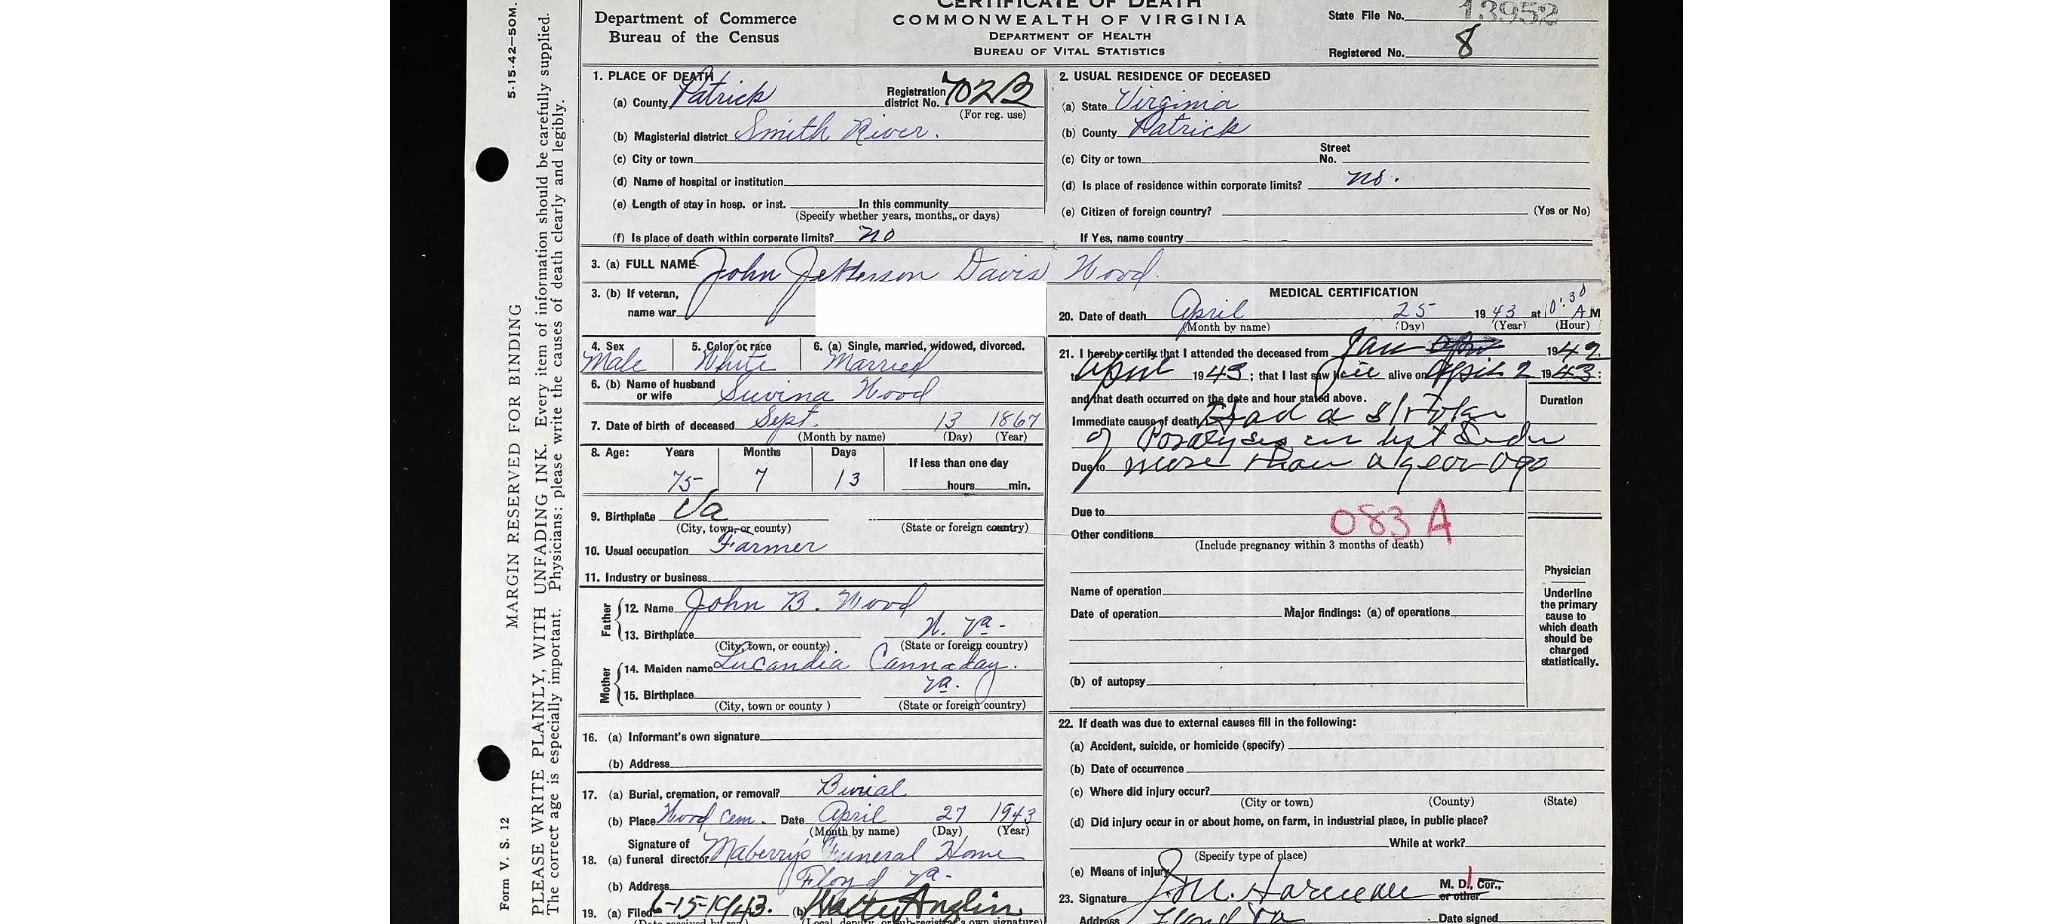 CERTIFICATE OF DEATH
Department of Commerce
Bureau of the Census
COMMONWEALTH OF VIRGINIA
DEPARTMENT OF HEALTH
BUREAU OF VITAL STATISTICS
State File No. 13952
Registered No. 8
5-15-42—50M.
MARGIN RESERVED FOR BINDING
Form V. S. 12
PLEASE WRITE PLAINLY, WITH UNFADING INK. Every item of information should be carefully supplied.
The correct age is especially important. Physicians: please write the causes of death clearly and legibly.
1. PLACE OF DEATH
(a) County Patrick Registration district No. 702B
(For reg. use)
(b) Magisterial district Smith River.
(c) City or town
(d) Name of hospital or institution
(e) Length of stay in hosp. or inst. In this community
(Specify whether years, months, or days)
(f) Is place of death within corporate limits? no
2. USUAL RESIDENCE OF DECEASED
(a) State Virginia
(b) County Patrick
(c) City or town Street No.
(d) Is place of residence within corporate limits? no.
(e) Citizen of foreign country? (Yes or No)
If Yes, name country
3. (a) FULL NAME John Jefferson Davis Wood
3. (b) If veteran,
name war
4. Sex 5. Color or race 6. (a) Single, married, widowed, divorced.
Male White Married
6. (b) Name of husband or wife Suvina Wood
7. Date of birth of deceased Sept. 13 1867
(Month by name) (Day) (Year)
8. Age: Years Months Days If less than one day
75 7 13 hours min.
9. Birthplace Va
(City, town, or county) (State or foreign country)
10. Usual occupation Farmer
11. Industry or business
Father
12. Name John B. Wood
13. Birthplace Va.
(City, town, or county) (State or foreign country)
Mother
14. Maiden name Cannaday.
15. Birthplace Va.
(City, town or county) (State or foreign country)
16. (a) Informant's own signature
(b) Address
17. (a) Burial, cremation, or removal? Burial
(b) Place Wood Cem. Date April 27 1943
(Month by name) (Day) (Year)
Signature of
18. (a) funeral director Maberry's Funeral Home
(b) Address Floyd Va.
19. (a) Filed 6-15-1943. (b) Walter Anglin
MEDICAL CERTIFICATION
20. Date of death April 25 1943 at 10:30 A M
(Month by name) (Day) (Year) (Hour)
21. I hereby certify that I attended the deceased from Jan 1942
to April 1943; that I last saw alive on April 2 1943;
and that death occurred on the date and hour stated above.
Duration
Immediate cause of death Had a Stroke
of Paralysis
Due to more than a year ago
Due to
083A
Other conditions
(Include pregnancy within 3 months of death)
Name of operation
Date of operation Major findings: (a) of operations
(b) of autopsy
Physician
Underline the primary cause to which death should be charged statistically.
22. If death was due to external causes fill in the following:
(a) Accident, suicide, or homicide (specify)
(b) Date of occurrence
(c) Where did injury occur?
(City or town) (County) (State)
(d) Did injury occur in or about home, on farm, in industrial place, in public place?
While at work?
(Specify type of place)
(e) Means of injury
23. Signature M. D., Cor., or other
Address Floyd Va Date signed